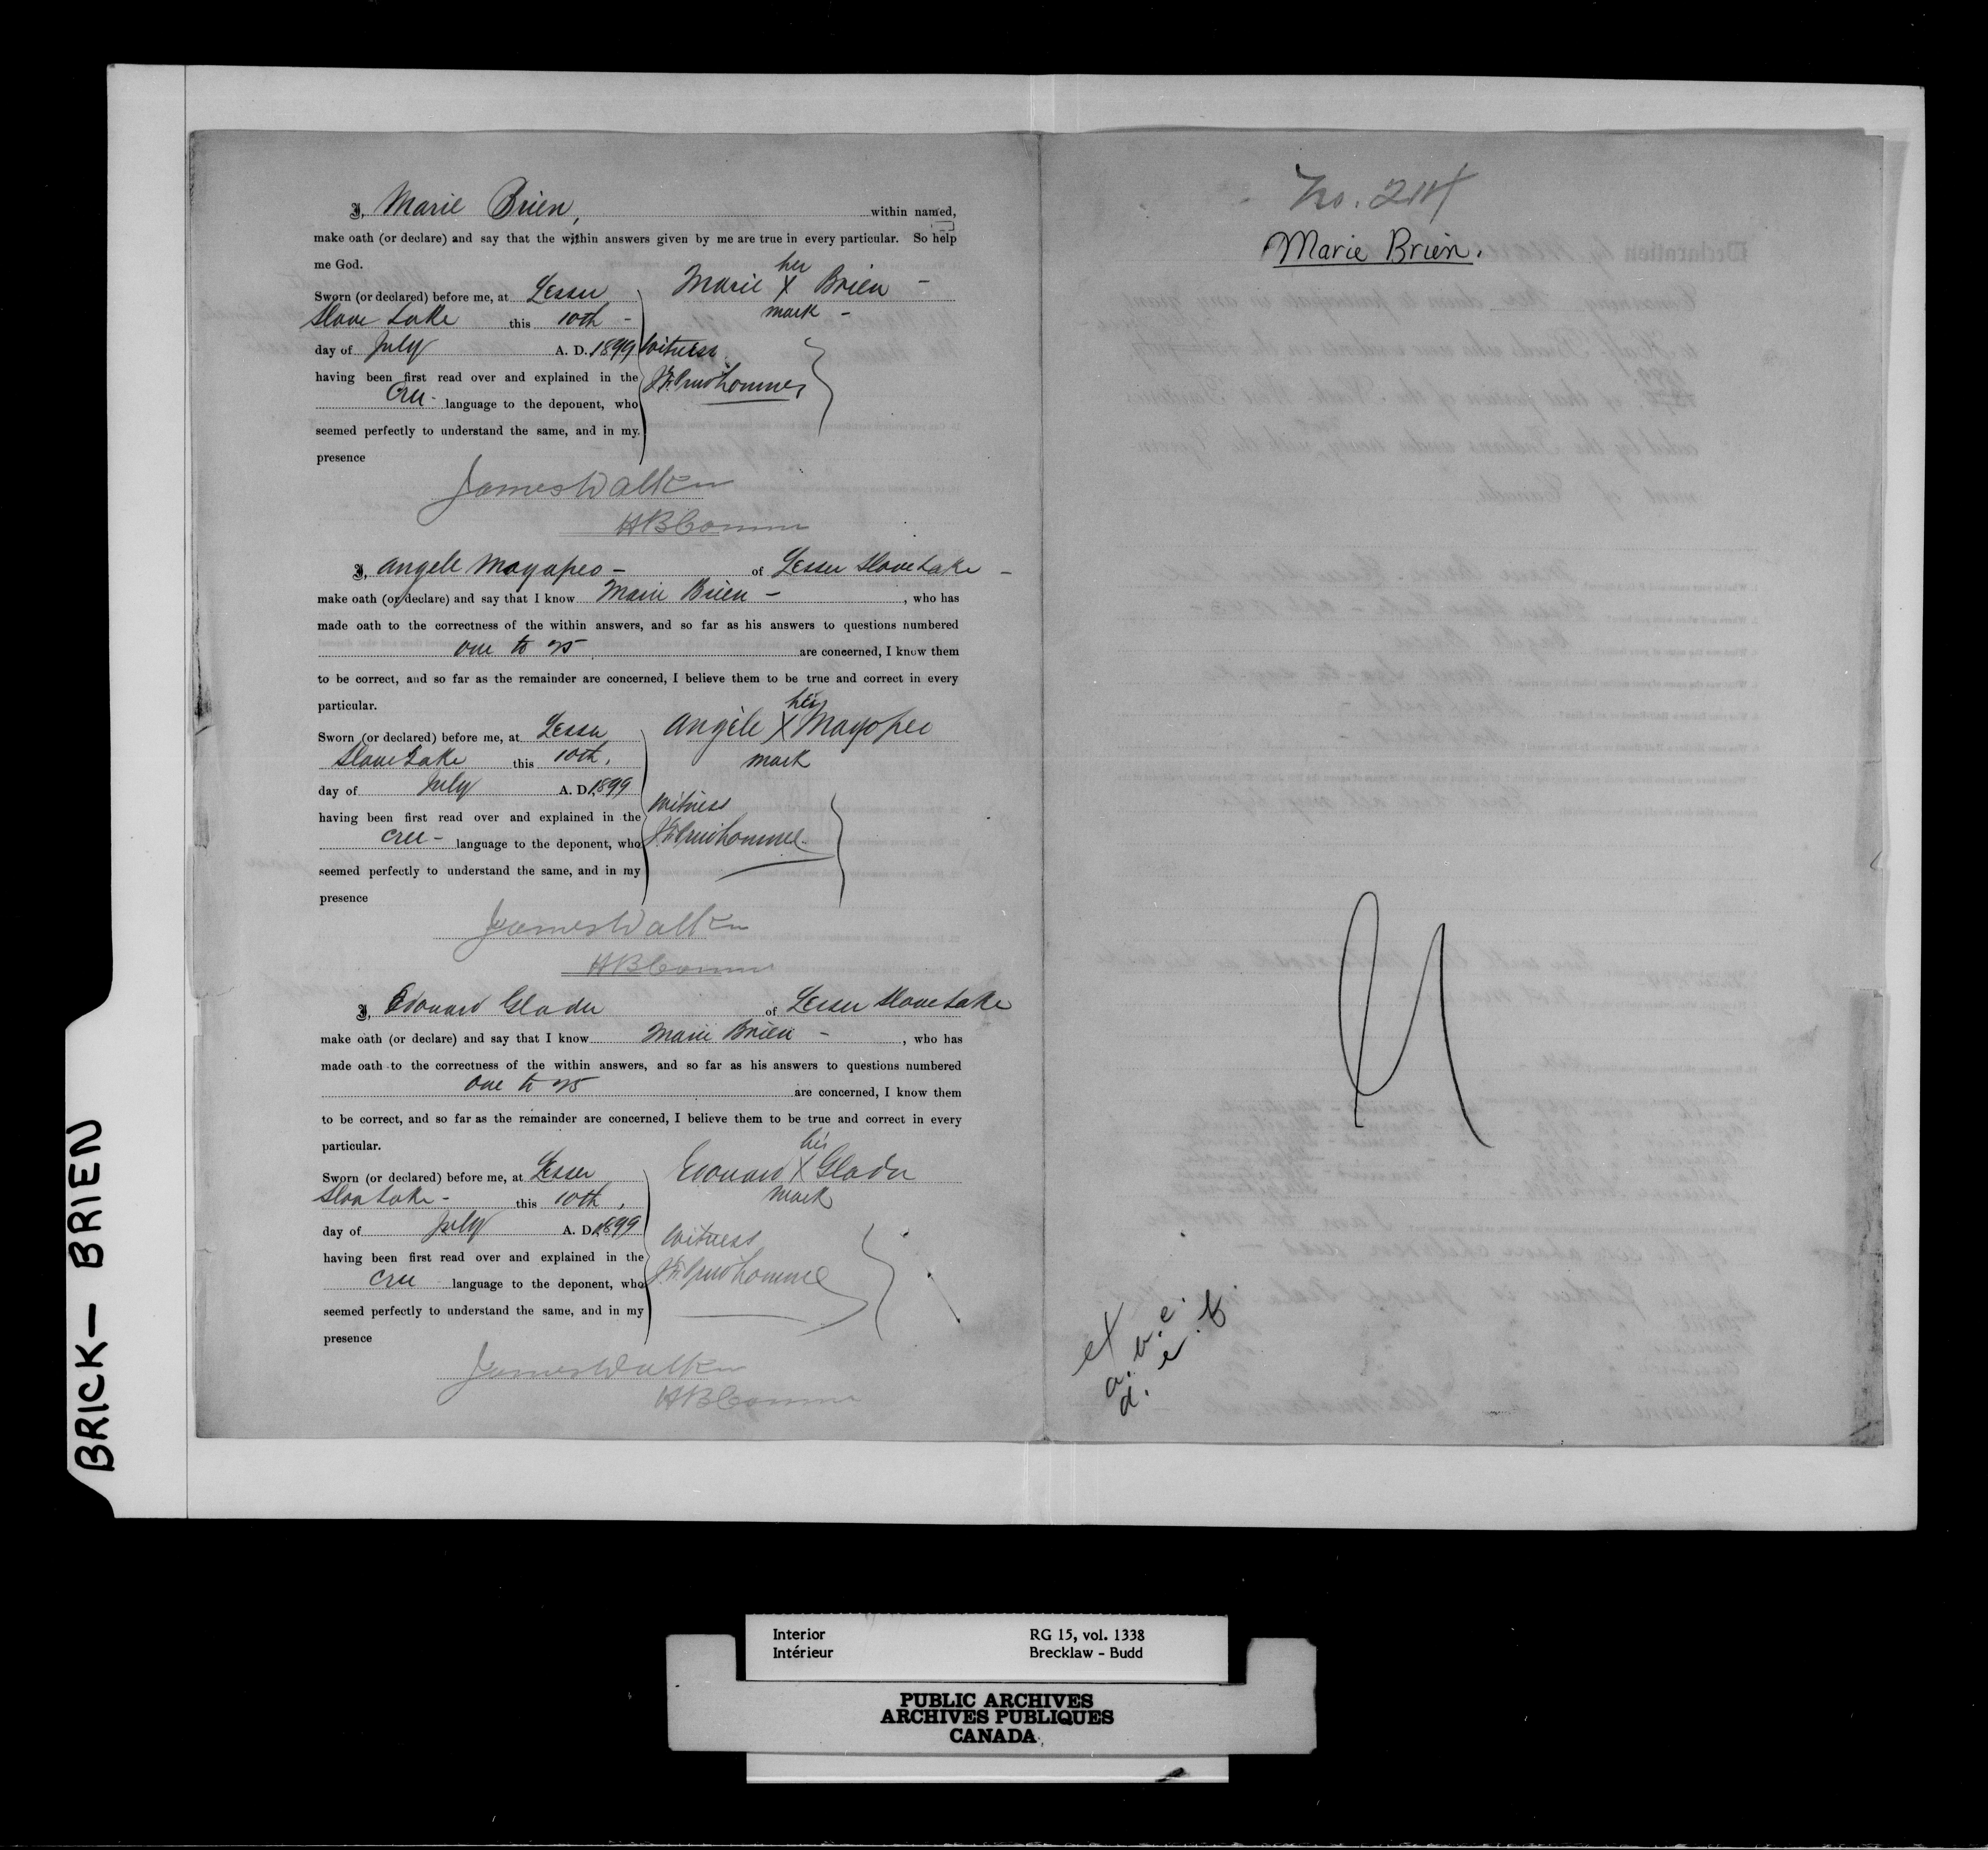 I, Marie Brien, within named,
make oath (or declare) and say that the within answers given by me are true in every particular. So help
me God.
Sworn (or declared) before me, at Lesser
Slave Lake this 10th -
day of July A. D. 1899
having been first read over and explained in the
Cree - language to the deponent, who
seemed perfectly to understand the same, and in my
presence
her
Marie X Brien -
mark -
Witness
Prudhomme
James Walker
HBComm
I, Angele Mayapeo - of Lesser Slave Lake -
make oath (or declare) and say that I know Marie Brien - , who has
made oath to the correctness of the within answers, and so far as his answers to questions numbered
one to 25 are concerned, I know them
to be correct, and so far as the remainder are concerned, I believe them to be true and correct in every
particular.
Sworn (or declared) before me, at Lesser
Slave Lake this 10th,
day of July A. D. 1899
having been first read over and explained in the
Cree - language to the deponent, who
seemed perfectly to understand the same, and in my
presence
her
Angèle X Mayapeo
mark
Witness
Prudhomme
James Walker
HBComm
I, Edouard Gladu of Lesser Slave Lake
make oath (or declare) and say that I know Marie Brien - , who has
made oath to the correctness of the within answers, and so far as his answers to questions numbered
One to 25 are concerned, I know them
to be correct, and so far as the remainder are concerned, I believe them to be true and correct in every
particular.
Sworn (or declared) before me, at Lesser
Lake - this 10th,
day of July A. D. 1899
having been first read over and explained in the
Cree language to the deponent, who
seemed perfectly to understand the same, and in my
presence
his
Edouard X Gladu
mark
Witness
Prudhomme
James Walker
HBComm
No. 214
Marie Brien.
BRICK - BRIEN
Interior
Intérieur
RG 15, vol. 1338
Brecklaw - Budd
PUBLIC ARCHIVES
ARCHIVES PUBLIQUES
CANADA